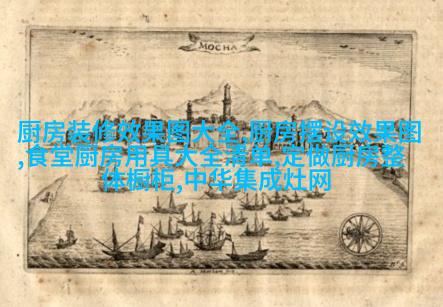 MOCHA
厨房装修效果图大全,厨房摆设效果图
,食堂厨房用具大全清单,定做厨房整
体橱柜,中华集成灶网